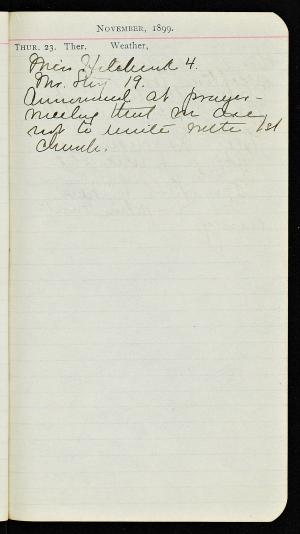 November, 1899.
Thur. 23. Ther. Weather,
Miss 4.
Mr. 19.
Announced at prayer-
meeting that we are
not to unite with 1st
church.